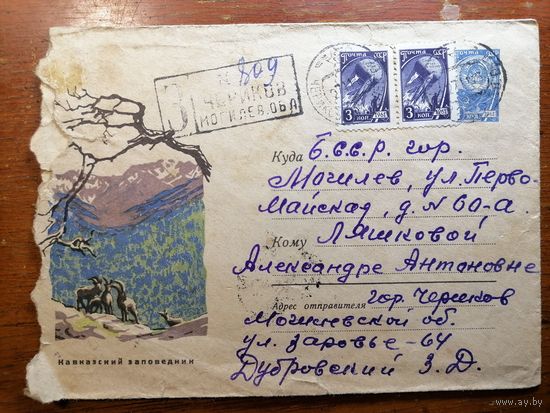 N 809
З ЧЕРИКОВ
МОГИЛЕВ.ОБЛ
ПОЧТА СССР
3 КОП.
ПОЧТА СССР
3 КОП.
ПОЧТА СССР
Куда Б.С.С.Р. гор.
Могилев, ул. Перво-
Майская, д. N 60-а.
Кому Ляшковой
Александре Антановне
Адрес отправителя гор. Чериков
Могилевской об.
ул. Заровье-64
Дубровский З.Д.
Кавказский заповедник
www.ay.by